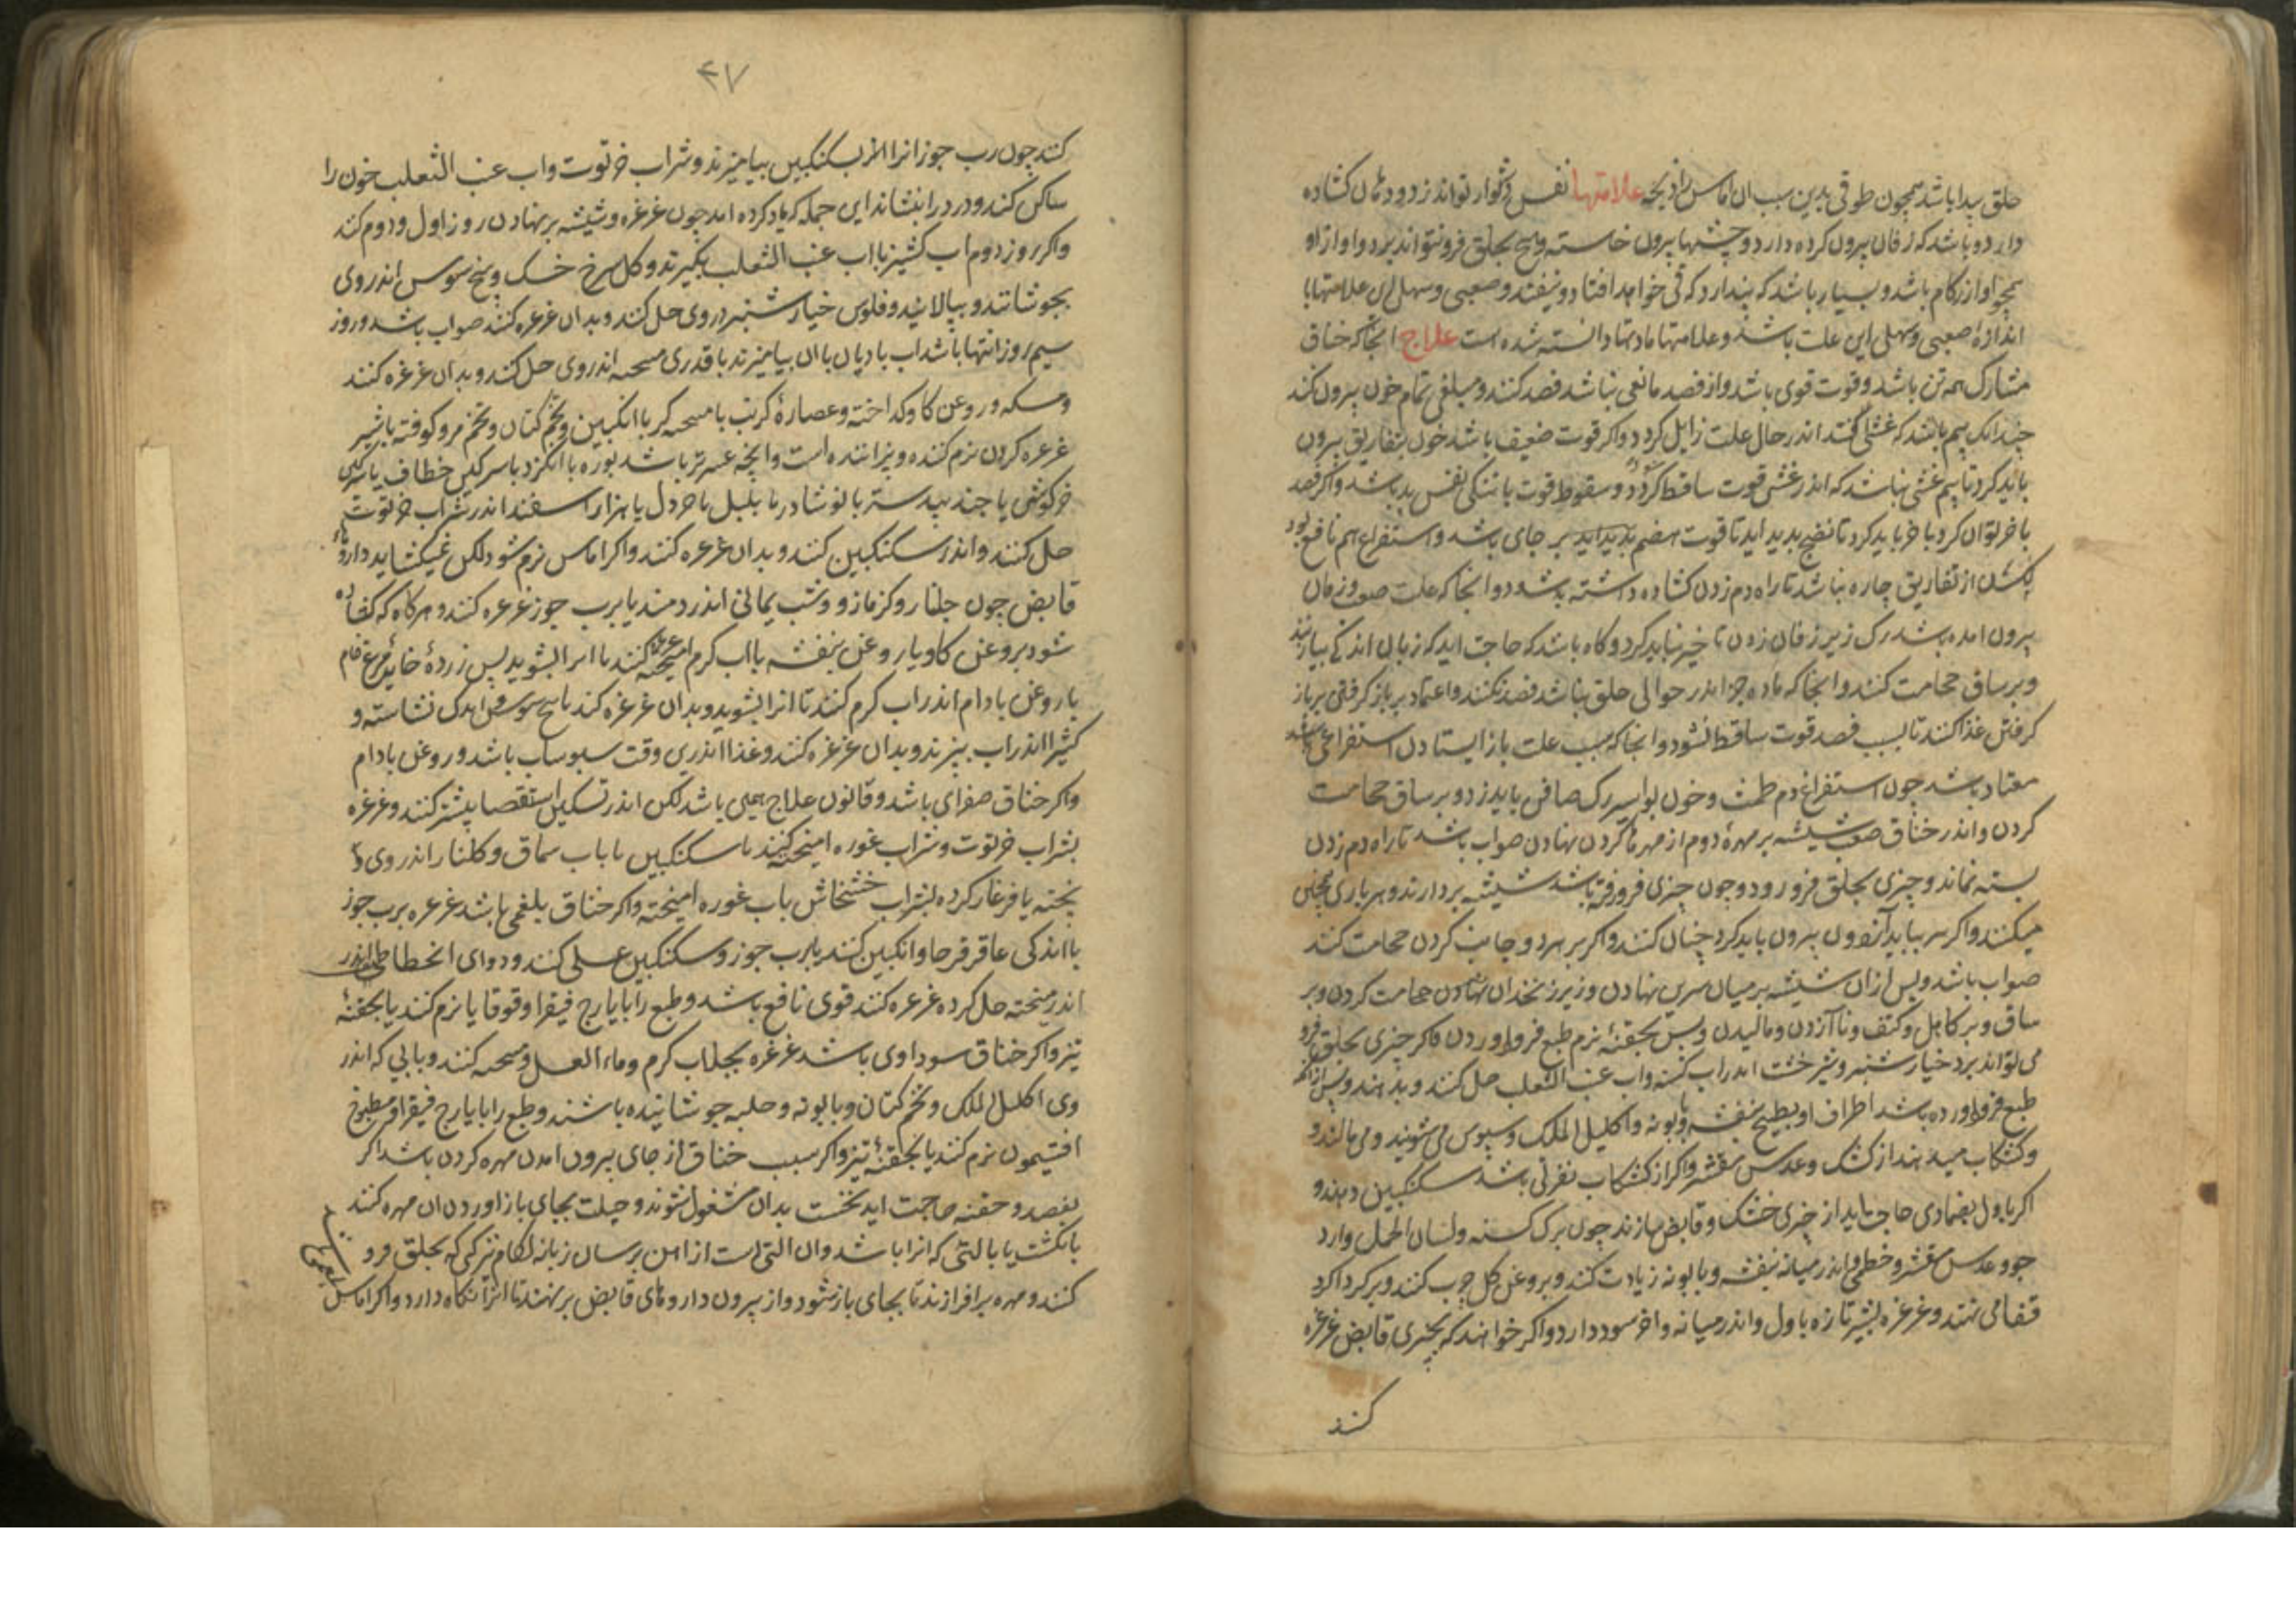 حلق پیدا باشد همچون طوقی بدین سبب ان اماس را ذبحه علامتها نفس دشوار تواند زد و دهان کشاده
دارد و باشد که زفان بیرون کرده دارد و چشمها بیرون خاسته و هیچ بحلق فرو نتواند برد و اواز او
همچو اواز زکام باشد و بسیار باشد که پندارد که قی خواهد افتاد و نیفتد و صعبی و سهلی این علامتها با
اندازه صعبی و سهلی این علت باشد و علامتها مادتها دانسته شده است علاج انجا که خناق
مشارک همه تن باشد و قوت قوی باشد و از فصد مانعی نباشد فصد کنند و مبلغی تمام خون بیرون کنند
چندانک بیم باشد که غشی افتد اندر حال علت زایل کردد و اکر قوت ضعیف باشد خون بتفاریق بیرون
باید کرد تا بیم غشی نباشد که اندر غشی قوت ساقط کردد و سقوط قوت با تنکی نفس بد باشد و اکر فصد
با خر توان کرد باخر باید کرد تا نضج بدید اید تا قوت هضم بدید اید بر جای باشد و استفراغ هم نافع بود
لکن از تفاریق چاره نباشد تا راه دم زدن کشاده داشته باشد و انجا که علت صعب و زفان
بیرون امده باشد رک زیر زفان زدن تاخیر نباید کرد و کاه باشد که حاجت اید که زبان اندکی بیازنند
و بر ساق حجامت کنند و انجا که ماده جز اندر حوالی حلق نباشد فصد نکنند و اعتماد بر باز کرفتن
کرفتن غذا کنند تا بسبب فصد قوت ساقط نشود و انجا که سبب علت باز ایستادن استفراغی باشد
معتاد باشد چون استفراغ دم طمث و خون بواسیر رک صافن باید زد و بر ساق حجامت
کردن و اندر خناق صعب شیشه بر مهره دوم از مهرهاء کردن نهادن صواب باشد تا راه دم زدن
بسته نماند و چیزی بحلق فرو رود و چون چیزی فرو رفته باشد شیشه بردارند و هر باری همچنین
میکنند و اکر سر بباید آنرا خون بیرون باید کرد چنان کنند و اکر بر هر دو جانب کردن حجامت کنند
صواب باشد و پس ازان شیشه بر میان سرین نهادن و زیر زنخدان نهادن حجامت کردن و بر
ساق و بر کاهل و کتف و نا آزدن و مالیدن و پس بحقنه نرم طبع فرو اوردن و اکر چیزی بحلق فرو
می تواند برد خیار شنبر و شیر خشت اندر اب کسنه و اب عنب الثعلب حل کنند و بدهند و پس ازانکه
طبع فرو اورده باشد اطراف او بطبیخ بنفشه و بابونه و اکلیل الملک و سبوس می شویند و می مالند و
و کشکاب میدهند از کشک و عدس مقشر و اکر از کشکاب نفرتی باشد سکنکبین دهند و
اکر باول بضمادی حاجت اید از چیزی خشک و قابض سازند چون برک کسنه و لسان الحمل و ارد
جو و عدس مقشر و خطمی و اندر میانه بنفشه و بابونه زیادت کنند و بروغن کل چرب کنند و بر کرداکرد
قفا می نهند و غرغره بشیر تازه باول و اندر میانه و اخر سود دارد و اکر خواهند که بچیزی قابض غرغره
کنند
۴۷
کنند چون رب جوز انرا اندر سکنکبین بیامیزند و شراب خرتوت و اب عنب الثعلب خون را
ساکن کند و درد را بنشاند این جمله که یاد کرده امد چون غرغره و شیشه بر نهادن روز اول و دوم کنند
و اکر روز دوم اب کشنیز با اب عنب الثعلب بکیرند و کل سرخ خشک و بیخ سوس اندر وی
بجوشانند و بپالایند و فلوس خیار شنبر در وی حل کنند و بدان غرغره کنند صواب باشد و روز
سیم روز انتها باشد اب بادیان با ان بیامیزند با قدری میبخته اندر وی حل کنند و بدان غرغره کنند
و مسکه و روغن کاو کداخته و عصاره کرنب با میبخته کر با انکبین و تخم کتان و تخم مرو کوفته باشیر
غرغره کردن نرم کننده و پزاننده است و انچه عسرتر باشد بوره با انکزد با سرکین خطاف یا سرکین
خرکوش یا جند بیدستر با نوشادر یا پلپل یا خردل یا هزار اسفند اندر شراب خرتوت
حل کنند و اندر سکنکبین کنند و بدان غرغره کنند و اکر اماس نرم شود لکن نمیکشاید داروهاء
قابض چون جلنار و کزمازو و شب یمانی اندر دمند یا برب جوز غرغره کنند و هرکاه که کشاده
شود بروغن کاو یا روغن بنفشه با اب کرم امیخته غرغره کنند تا انرا بشوید پس زرده خایه مرغ خام
با روغن بادام اندر اب کرم کنند تا انرا بشوید و بدان غرغره کنند یا بیخ سوس و اندک نشاسته و
کثیرا اندر اب بپزند و بدان غرغره کنند و غذا اندرین وقت سبوساب باشد و روغن بادام
و اکر خناق صفرای باشد و قانون علاج همین باشد لکن اندر تسکین استقصا بیشتر کنند و غرغره
بشراب خرتوت و شراب غوره امیخته کنند یا سکنکبین یا باب سماق و کلنار اندر وی
پخته یا فرغار کرده بشراب خشخاش باب غوره امیخته و اکر خناق بلغمی باشد غرغره برب جوز
با اندکی عاقرقرحا و انکبین کنند یا برب جوز و سکنکبین عسلی کنند و دوای الخطاطیف اندر
اندر میبخته حل کرده غرغره کنند قوی نافع باشد و طبع را بایارج فیقرا و قوقایا نرم کنند یا بحقنه
تیز و اکر خناق سوداوی باشد غرغره بجلاب کرم و ماء العسل و میبخته کنند و بابی که اندر
وی اکلیل الملک و تخم کتان و بابونه و حلبه جوشانیده باشند و طبع را بایارج فیقرا و مطبوخ
افتیمون نرم کنند یا بحقنه تیز و اکر سبب خناق از جای بیرون امدن مهره کردن باشد اکر
بفصد و حقنه حاجت اید نخست بدان مشغول شوند و حیلت بجای باز اوردن ان مهره کنند
بانکشت یا بالتی که انرا باشد و ان التی است از اهن برسان زبانه لکام تیز کی که بحلق فرو
کنند و مهره برافرازند تا بجای باز شود و از بیرون داروهای قابض بر نهند تا انرا نکاه دارد و اکر اماس